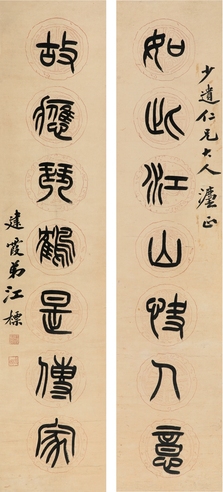 少遺仁兄大人灋正
如此江山快人意
故應琴鶴是傳家
建霞弟江標